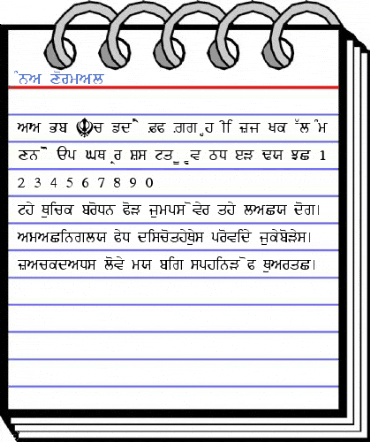 ੰਨਅ ਣੋਰਮਅਲ
ਅਅ ਭਬ ☬ਚ ਡਦ ੈੲ ਫ਼ਫ ਗ਼ਗ ੍ਹ ੀਿ ਜ਼ਜ ਖਕ ੱਲ ੰਮ
ਣਨ ੌੋ ਓਪ ਘਥ ੍ਰਰ ਸ਼ਸ ਟਤ ੂੁ ੍ਵਵ ਠਧ ਏੜ ਢਯ ਝਛ 1
2 3 4 5 6 7 8 9 0
ਟਹੇ ਥੁਚਿਕ ਬਰੋਧਨ ਫੋੜ ਜੁਮਪਸ ੋਵੇਰ ਤਹੇ ਲਅਛਯ ਦੋਗ।
ਅਮਅਛਨਿਗਲਯ ਫੇਧ ਦਸਿਚੋਤਹੇਥੁੇਸ ਪਰੋਵਦਿੇ ਜੁਕੇਬੋੜੇਸ।
ਜ਼ਅਚਕਦਅਧਸ ਲੋਵੇ ਮਯ ਬਗਿ ਸਪਹਨਿੜ ੋਫ ਥੁਅਰਤਛ।